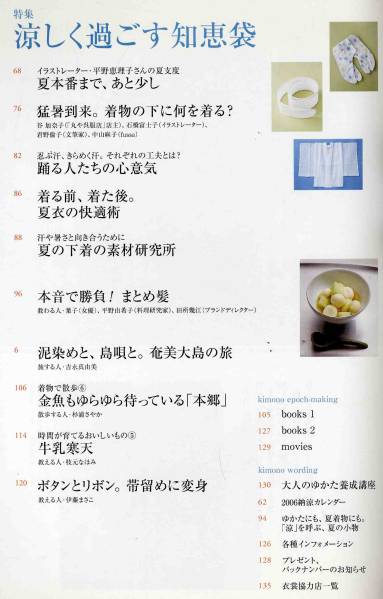 特集
涼しく過ごす知恵袋
68 イラストレーター・平野恵理子さんの夏支度
夏本番まで、あと少し
76 猛暑到来。着物の下に何を着る?
谷 加奈子(「丸や呉服店」店主)、石橋富士子(イラストレーター)、
君野倫子(文筆家)、中山麻子(funaa)
82 忍ぶ汗、きらめく汗。それぞれの工夫とは?
踊る人たちの心意気
86 着る前、着た後。
夏衣の快適術
88 汗や暑さと向き合うために
夏の下着の素材研究所
96 本音で勝負! まとめ髪
教わる人・葉子(女優)、平野由希子(料理研究家)、田所幾江(ブランドディレクター)
6 泥染めと、島唄と。奄美大島の旅
旅する人・吉永真由美
106 着物で散歩⑥
金魚もゆらゆら待っている「本郷」
散歩する人・杉浦さやか
114 時間が育てるおいしいもの⑤
牛乳寒天
教える人・枝元なほみ
120 ボタンとリボン。帯留めに変身
教える人・伊藤まさこ
kimono epoch-making
105 books 1
127 books 2
129 movies
kimono wording
130 大人のゆかた養成講座
62 2006納涼カレンダー
94 ゆかたにも、夏着物にも。
「涼」を呼ぶ、夏の小物
126 各種インフォメーション
128 プレゼント、
バックナンバーのお知らせ
135 衣裳協力店一覧